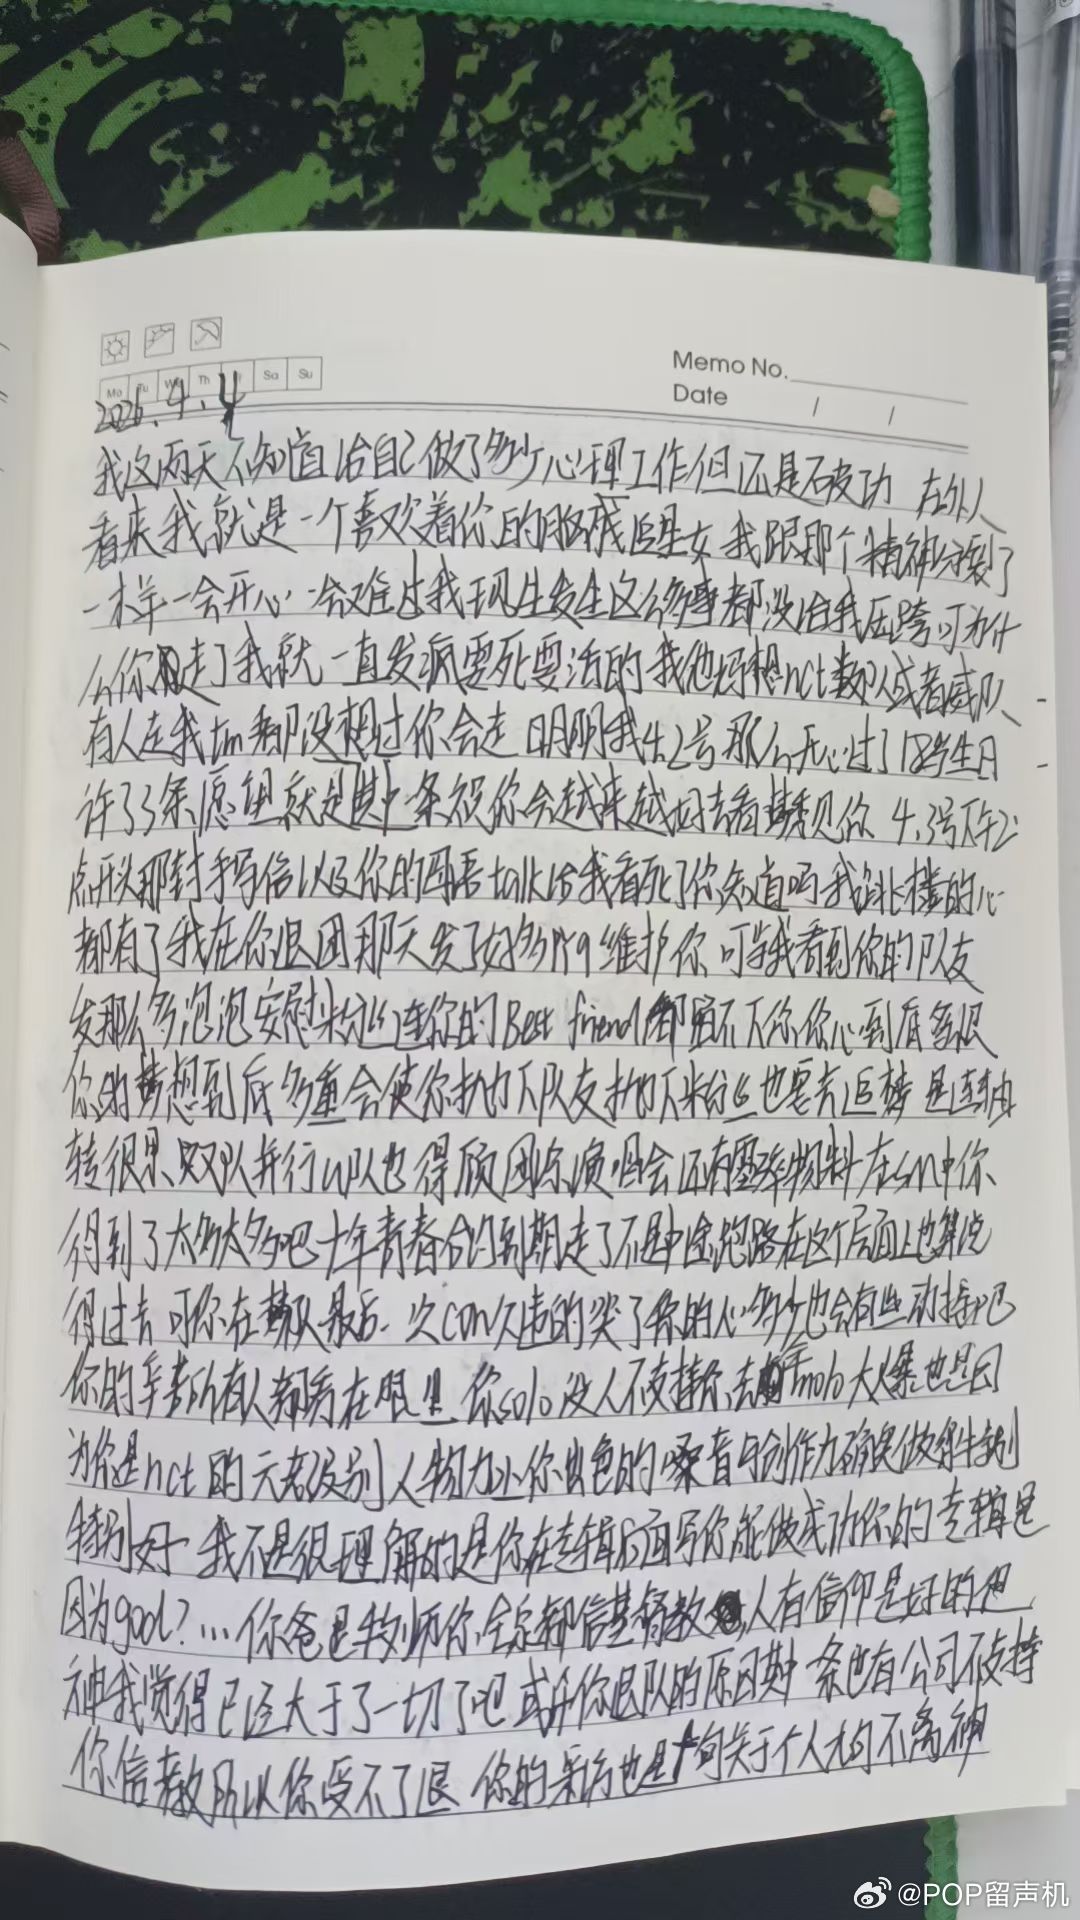 Memo No.
Date / /
Mo Tu We Th Sa Su
2026.4.4
我这两天不知道给自己做了多少心理工作但还是破功 在外人
看来我就是一个喜欢着你的脑残追星女 我跟那个精神分裂了
一样一会开心一会难过我现生发生这么多事都没给我压垮可为什
么你走了我就一直发疯要死要活的 我他妈想nct数队或者威队
有人走我tm都没想过你会走 明明我4.2号那么开心过了18岁生日
许了3条愿望就是其中一条祝你会越来越好去看梦秀见你 4.3号下午2
点开头那封手写信以及你的母语talk给我看死了你知道吗我跳楼的心
都有了我在你退团那天发了好多pyq维护你 可当我看到你的队友
发那么多泡泡安慰粉丝连你的Best friend都留不下你你心到底多狠
你的梦想到底多重会使你抛下队友抛下粉丝也要去追梦 是连轴
转很累 双队并行u队也得顾 团综演唱会还有零碎物料 在sm中你
得到了太多太多吧十年青春合约到期走了不是中途跑路在这个层面上也算说
得过去 可你在梦队最后一次con久违的哭了你的心多少也会有些动摇吧
你的辛苦所有人都看在眼里 你solo没人不支持你 去年solo大爆也是因
为你是nct的元老级别人物加上你出色的嗓音与创作力确实做得特别
特别好 我不是很理解的是你在专辑后面写你能做成功你的专辑是
因为god?...你爸是牧师你全家都信基督教 人有信仰是好的但
神我觉得已经大于了一切了吧 或许你退队的原因其中一条也有公司不支持
你信教所以你受不了退 你的采访也是十句关于个人九句不离神
@POP留声机